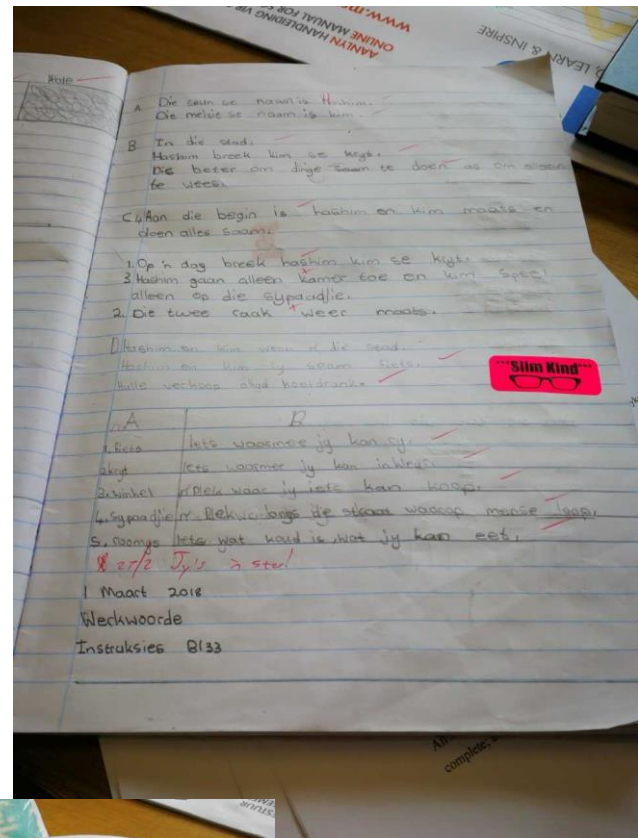 WWW.
ONLINE MANUAL FOR
AANLYN HANDLEIDING VIR
LEARN & INSPIRE
A Die seun se naam is Hashim.
Die meisie se naam is kim.
B In die stad.
Hashim breek kim se kryt.
Die beter om dinge saam te doen as om alleen
te wees.
C 4 Aan die begin is hashim en kim maats en
doen alles saam.
1. Op 'n dag breek hashim kim se kryt.
3. Hashim gaan alleen kamer toe en kim speel
alleen op die sypaadjie.
2. Die twee raak weer maats.
D Hashim en kim woon in die stad.
Hashim en kim ry saam fiets.
Hulle verkoop altyd koeldrank.
"Slim Kind"
A B
1. fiets Iets waarmee jy kan ry.
2. kryt Iets waarmee jy kan
3. winkel 'n Plek waar jy iets kan koop.
4. Sypaadjie 'n Plek langs die straat waarop mense loop.
5. roomys Iets wat koud is, wat jy kan eet.
Jy's 'n ster!
1 Maart 2018
Werkwoorde
Instruksies Bl33
complete,